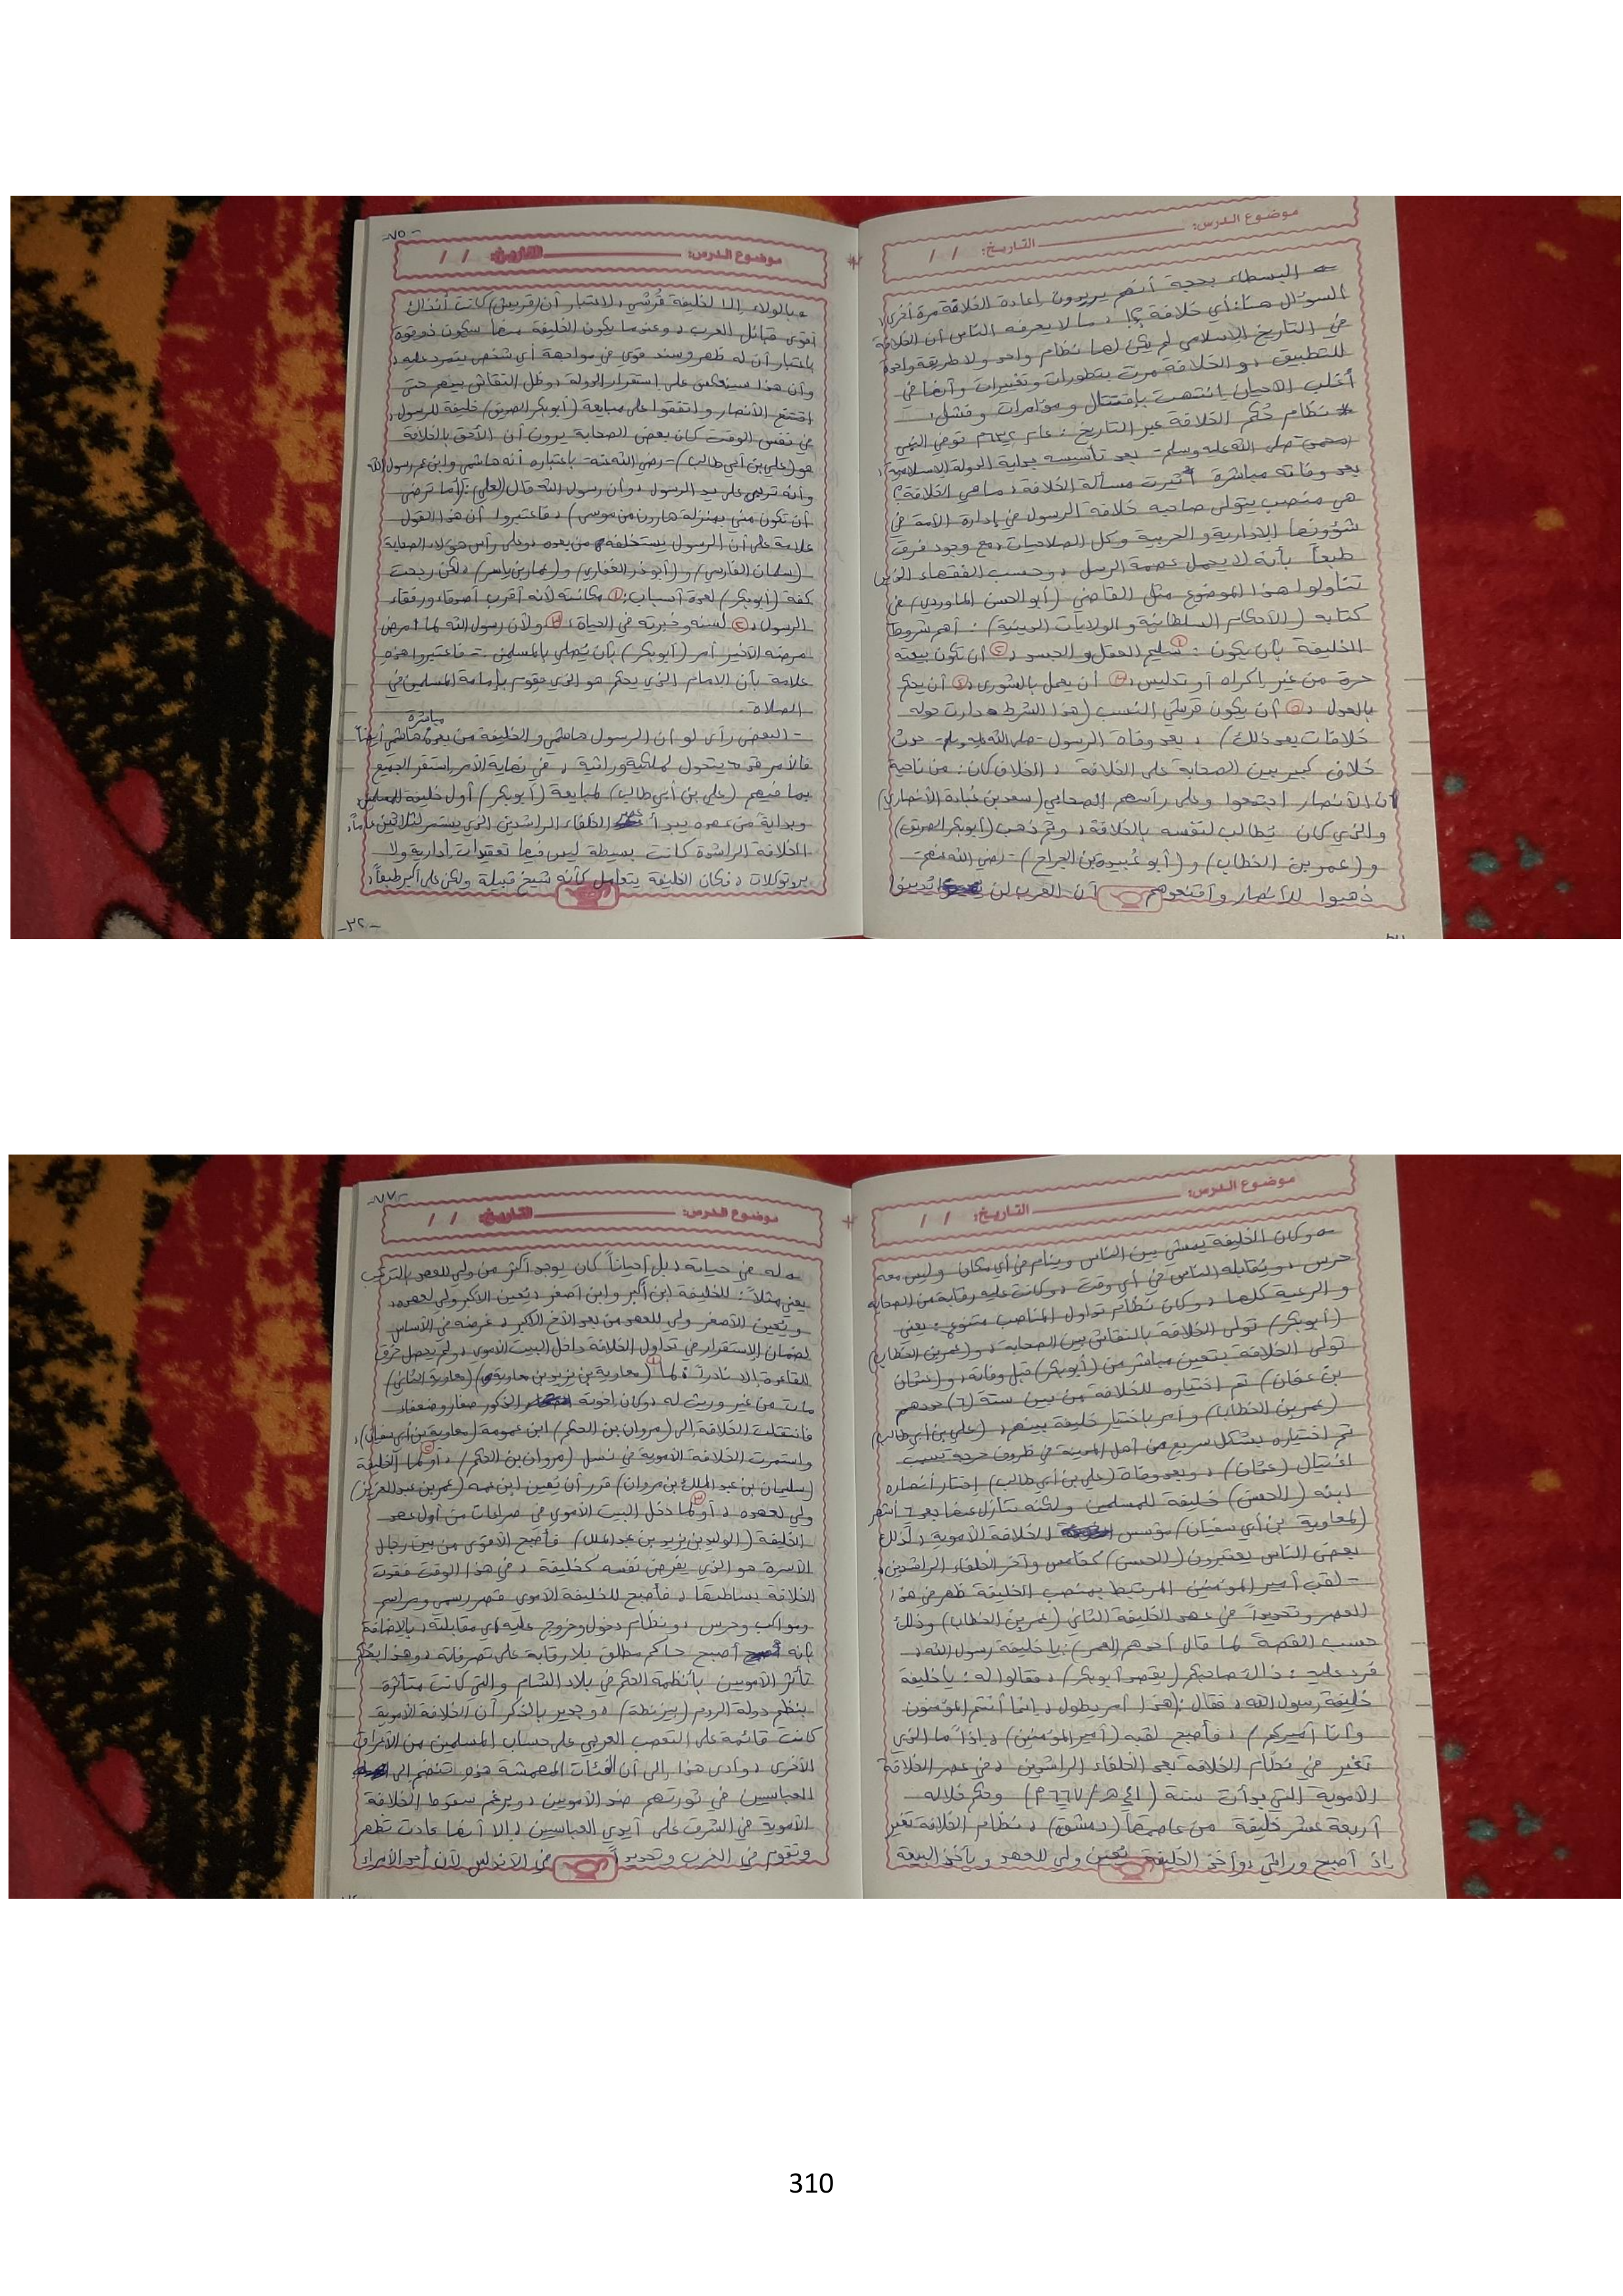 موضوع الدرس:
التاريخ: / /
← البسطاء بحجة أنهم يريدون إعادة الخلافة مرة أخرى،
السؤال هنا: أي خلافة؟! ، ما لا يعرفه الناس أن الخلافة
في التاريخ الإسلامي لم يكن لها نظام واحد ولا طريقة واحدة
للتطبيق، والخلافة مرت بتطورات وتغييرات وأنها في
أغلب الأحيان انتهت بإقتتال ومؤامرات وفشل.
* نظام حُكم الخلافة عبر التاريخ: عام ٦٣٢م توفى النبي
(محمد) -صلى الله عليه وسلم- بعد تأسيسه بداية الدولة الإسلامية،
بعد وفاته مباشرة أثيرت مسألة الخلافة، ما هي الخلافة؟
هي منصب يتولى صاحبه خلافة الرسول في إدارة الأمة في
شؤونها الإدارية والحربية وكل الصلاحيات، مع وجود فرق
طبعاً بأنه لا يحمل عصمة الرسل، وحسب الفقهاء الذين
تناولوا هذا الموضوع مثل القاضي (أبو الحسن الماوردي) في
كتابه (الأحكام السلطانية والولايات الدينية): أهم شروط
الخليفة بأن يكون: ① سليم العقل والجسد، ② أن تكون بيعته
حرة من غير إكراه أو تدليس، ③ أن يعمل بالشورى، ④ أن يحكم
بالعدل، ⑤ أن يكون قرشي النسب (هذا الشرط دارت حوله
خلافات بعد ذلك) ، بعد وفاة الرسول -صلى الله عليه وسلم- حدث
خلاف كبير بين الصحابة على الخلافة ، الخلاف كان: من ناحية
أن الأنصار اجتمعوا وعلى رأسهم الصحابي (سعد بن عُبادة الأنصاري)
والذي كان يُطالب لنفسه بالخلافة، وثم ذهب (أبوبكر الصديق)
و(عمر بن الخطاب) و(أبو عُبيدة بن الجراح) -رضي الله عنهم-
ذهبوا للأنصار وأقنعوهم أن العرب لن يُدينوا
-٧٥-
موضوع الدرس:
التاريخ: / /
← بالولاء إلا لخليفة قُرشي، لاعتبار أن (قريش) كانت آنذاك
أقوى قبائل العرب، وعندما يكون الخليفة منها سيكون ذو قوة
باعتبار أن له ظهر وسند قوي في مواجهة أي شخص يتمرد عليه،
وأن هذا سينعكس على إستقرار الدولة، وظل النقاش بينهم حتى
اقتنع الأنصار واتفقوا على مبايعة (أبوبكر الصديق) خليفة للرسول،
في نفس الوقت كان بعض الصحابة يرون أن الأحق بالخلافة
هو (علي بن أبي طالب) -رضي الله عنه- باعتباره أنه هاشمي وابن عم رسول الله
وأنه تربى على يد الرسول، وأن رسول الله قال (لعلي): (أما ترضى
أن تكون مني بمنزلة هارون من موسى) ، فاعتبروا أن هذا القول
علامة على أن الرسول يستخلفه من بعده، وعلى رأس هؤلاء الصحابة
(سلمان الفارسي) و(أبو ذر الغفاري) و(عمار بن ياسر) ، لكن ربحت
كفة (أبوبكر) لعدة أسباب: ① مكانته لأنه أقرب أصدقاء ورفقاء
الرسول، ② لسنه وخبرته في الحياة، ③ ولأن رسول الله لما مرض
مرضه الأخير أمر (أبوبكر) بأن يُصلي بالمسلمين - فاعتبروا هذه
علامة بأن الإمام الذي يحكم هو الذي يقوم بإمامة المسلمين في
الصلاة.
مباشرة
- البعض رأى لو أن الرسول هاشمي والخليفة من بعده هاشمي أيضاً
فالأمر قد يتحول لملكية وراثية ، في نهاية الأمر استقر الجميع
بما فيهم (علي بن أبي طالب) لمبايعة (أبوبكر) أول خليفة للمسلمين
وبداية من عهده يبدأ عصر الخلفاء الراشدين الذي يستمر لثلاثين عاماً،
الخلافة الراشدة كانت بسيطة ليس فيها تعقيدات إدارية ولا
بروتوكلات ، فكان الخليفة يتعامل كأنه شيخ قبيلة ولكن على أكبر طبعاً،
-٣٢-
موضوع الدرس:
التاريخ: / /
← وكان الخليفة يمشي بين الناس وينام في أي مكان وليس معه
حرس ، ويُقابله الناس في أي وقت ، وكانت عليه رقابة من الصحابة
والرعية كلها ، وكان نظام تداول المناصب متنوع: يعني
(أبوبكر) تولى الخلافة بالنقاش بين الصحابة، و(عمر بن الخطاب)
تولى الخلافة بتعيين مباشر من (أبوبكر) قبل وفاته، و(عثمان
بن عفان) تم اختياره للخلافة من بين ستة (٦) حددهم
(عمر بن الخطاب) وأمر باختيار خليفة بينهم، (علي بن أبي طالب)
تم اختياره بشكل سريع من أهل المدينة في ظروف حرجة بسبب
اغتيال (عثمان) ، وبعد وفاة (علي بن أبي طالب) إختار أنصاره
ابنه (الحسن) خليفة للمسلمين ولكنه تنازل عنها بعد ٦ أشهر
(لمعاوية بن أبي سفيان) مؤسس الخلافة الأموية، لذلك
بعض الناس يعتبرون (الحسن) كخامس وآخر الخلفاء الراشدين.
- لقب أمير المؤمنين المرتبط بمنصب الخليفة ظهر في هذا
العصر وتحديداً في عهد الخليفة الثاني (عمر بن الخطاب) وذلك
حسب القصة لما قال أحدهم (لعمر): يا خليفة رسول الله،
فرد عليه: ذاك صاحبكم (يقصد أبوبكر) ، فقالوا له: يا خليفة
خليفة رسول الله ، فقال: (هذا أمر يطول، إنما أنتم المؤمنون
وأنا أميركم) ، فأصبح لقبه (أمير المؤمنين) ، إذاً ما الذي
تغير في نظام الخلافة بعد الخلفاء الراشدين ، في عصر الخلافة
الأموية التي بدأت سنة (٤١هـ/٦٦١م) وحكم خلاله
أربعة عشر خليفة من عاصمتها (دمشق) ، نظام الخلافة تغير
إذ أصبح وراثي، وأخذ الخليفة يُعين ولي للعهد ويأخذ البيعة
-٧٧-
موضوع الدرس:
التاريخ: / /
← له في حياته ، بل أحياناً كان يوجد أكثر من ولي للعهد بالترتيب
يعني مثلاً: للخليفة ابن أكبر وابن أصغر ، يُعين الأكبر ولي لعهده،
ويُعين الأصغر ولي للعهد من بعد الأخ الأكبر ، غرضه في الأساس
لضمان الإستقرار في تداول الخلافة داخل البيت الأموي، ولم يحصل خرق
للقاعدة إلا نادراً: ① لما (معاوية بن يزيد بن معاوية) (معاوية الثاني)
مات من غير وريث له ، وكان إخوته الذكور صغار وضعفاء
فانتقلت الخلافة إلى (مروان بن الحكم) ابن عمومة (معاوية بن أبي سفيان)،
واستمرت الخلافة الأموية في نسل (مروان بن الحكم) ، ② أو لما الخليفة
(سليمان بن عبد الملك بن مروان) قرر أن يُعين ابن عمه (عمر بن عبد العزيز)
ولي لعهده ، ③ أو لما دخل البيت الأموي في صراعات من أول عهد
الخليفة (الوليد بن يزيد بن عبد الملك) فأصبح الأقوى من بين رجال
الأسرة هو الذي يفرض نفسه كخليفة ، في هذا الوقت فقدت
الخلافة بساطتها ، فأصبح للخليفة الأموي قصر رسمي ومراسم
ومواكب وحرس ، ونظام دخول وخروج عليه أي مقابلته، بالإضافة
بأنه أصبح حاكم مطلق بلا رقابة على تصرفاته ، وهذا بحُكم
تأثر الأمويين بأنظمة الحكم في بلاد الشام والتي كانت متأثرة
بنظم دولة الروم (بيزنطة) ، وجدير بالذكر أن الخلافة الأموية
كانت قائمة على التعصب العربي على حساب المسلمين من الأعراق
الأخرى ، وأدى هذا إلى أن الفئات المهمشة هذه تنضم إلى
العباسيين في ثورتهم ضد الأمويين ، وبرغم سقوط الخلافة
الأموية في الشرق على أيدي العباسيين ، إلا أنها عادت تظهر
وتقوم في الغرب وتحديداً في الأندلس لأن أحد الأمراء
310